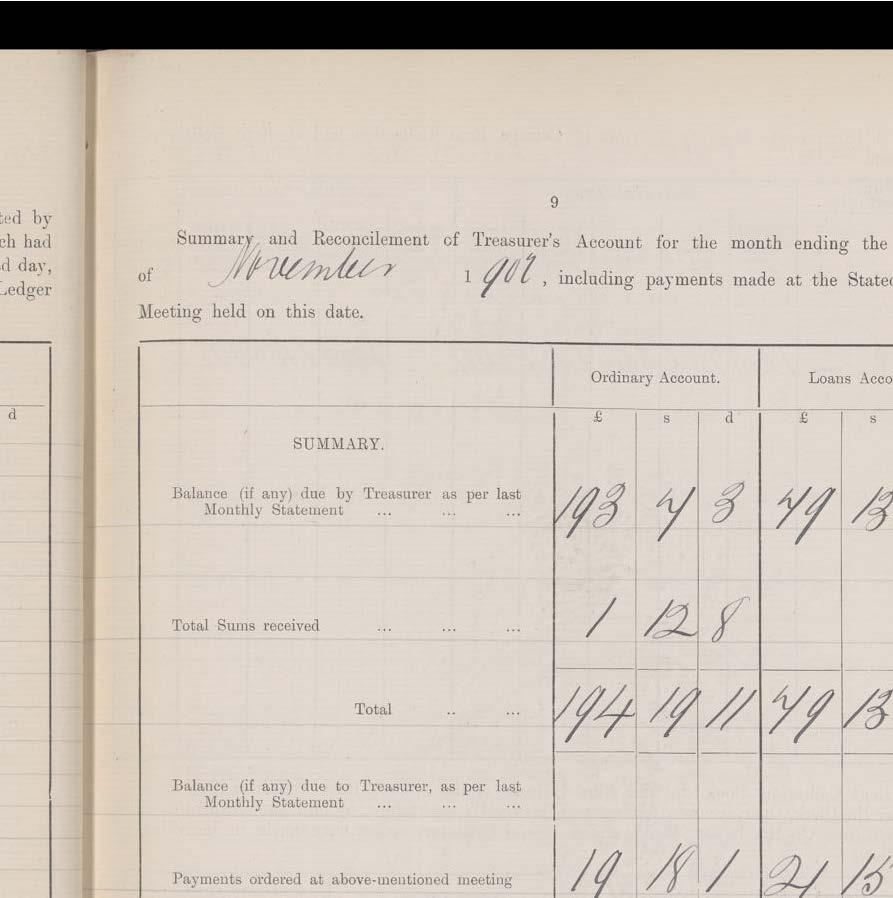 ted by
ch had
d day,
Ledger
d
9
Summary and Reconcilement of Treasurer's Account for the month ending the
of November 1 , including payments made at the Stated
Meeting held on this date.
Ordinary Account. Loans Acco
£ s d £ s
SUMMARY.
Balance (if any) due by Treasurer as per last
Monthly Statement ... ... ... 193 7 3 79 13
Total Sums received ... ... ... 1 12 8
Total .. ... 194 19 11 79 13
Balance (if any) due to Treasurer, as per last
Monthly Statement ... ... ...
Payments ordered at above-mentioned meeting 19 18 1 21 15